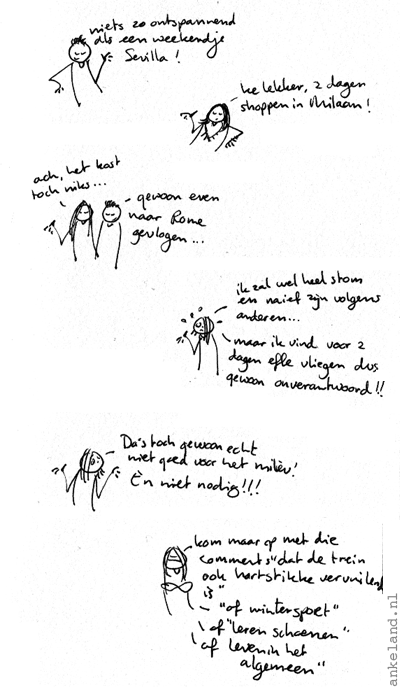 niets zo ontspannend
als een weekendje
Sevilla!
ke lekker, 2 dagen
shoppen in Milaan!
ach, het kost
toch niks...
gewoon even
naar Rome
gevlogen...
ik zal wel heel stom
en naief zijn volgens
anderen...
maar ik vind voor 2
dagen effe vliegen dus
gewoon onverantwoord!!
Da's toch gewoon echt
niet goed voor het milieu!
Èn niet nodig!!!
kom maar op met die
comments "dat de trein
ook hartstikke vervuilend
is"
"of wintersport"
of "leren schoenen"
of leven in het
algemeen"
ankeland.nl